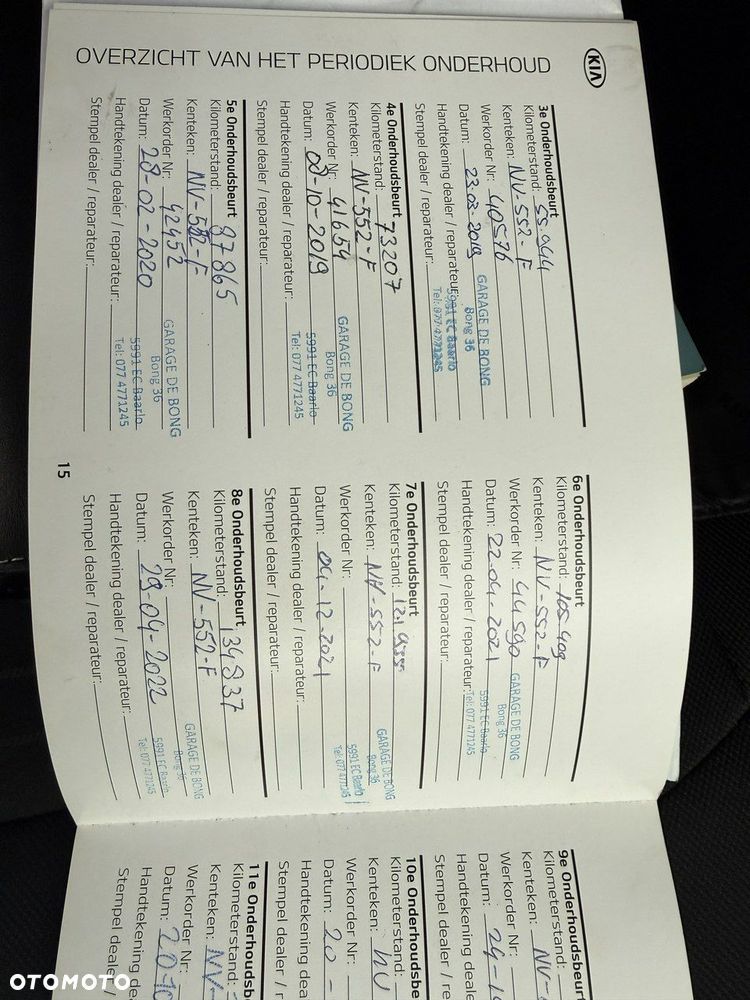 KIA
OVERZICHT VAN HET PERIODIEK ONDERHOUD
3e Onderhoudsbeurt
Kilometerstand: 55.044
Kenteken: NV-552-F
Werkorder Nr: 40576
Datum: 23-02-2019
Handtekening dealer / reparateur:
Stempel dealer / reparateur:
GARAGE DE BONG
Bong 36
5991 EC Baarlo
Tel: 077 4771245
4e Onderhoudsbeurt
Kilometerstand: 73207
Kenteken: NV-552-F
Werkorder Nr: 41654
Datum: 08-10-2019
Handtekening dealer / reparateur:
Stempel dealer / reparateur:
GARAGE DE BONG
Bong 36
5991 EC Baarlo
Tel: 077 4771245
5e Onderhoudsbeurt
Kilometerstand: 87865
Kenteken: NV-552-F
Werkorder Nr: 42452
Datum: 28-02-2020
Handtekening dealer / reparateur:
Stempel dealer / reparateur:
GARAGE DE BONG
Bong 36
5991 EC Baarlo
Tel: 077 4771245
15
6e Onderhoudsbeurt
Kilometerstand: 105409
Kenteken: NV-552-F
Werkorder Nr: 44590
Datum: 22-04-2021
Handtekening dealer / reparateur:
Stempel dealer / reparateur:
GARAGE DE BONG
Bong 36
5991 EC Baarlo
Tel: 077 4771245
7e Onderhoudsbeurt
Kilometerstand:
Kenteken: NV-552-F
Werkorder Nr:
Datum: 04-12-2021
Handtekening dealer / reparateur:
Stempel dealer / reparateur:
GARAGE DE BONG
Bong 36
5991 EC Baarlo
Tel: 077 4771245
8e Onderhoudsbeurt
Kilometerstand: 134837
Kenteken: NV-552-F
Werkorder Nr:
Datum: 29-04-2022
Handtekening dealer / reparateur:
Stempel dealer / reparateur:
GARAGE DE BONG
Bong 36
5991 EC Baarlo
Tel: 077 4771245
9e Onderhoudsbeurt
Kilometerstand:
Kenteken: NV-
Werkorder Nr:
Datum: 24-1
Handtekening dealer
Stempel dealer / re
10e Onderhoudsbe
Kilometerstand:
Kenteken: NV
Werkorder Nr:
Datum: 20-
Handtekening dea
Stempel dealer /
11e Onderhoudsb
Kilometerstand:
Kenteken: NV-
Werkorder Nr:
Datum: 20-10
Handtekening de
Stempel dealer
OTOMOTO